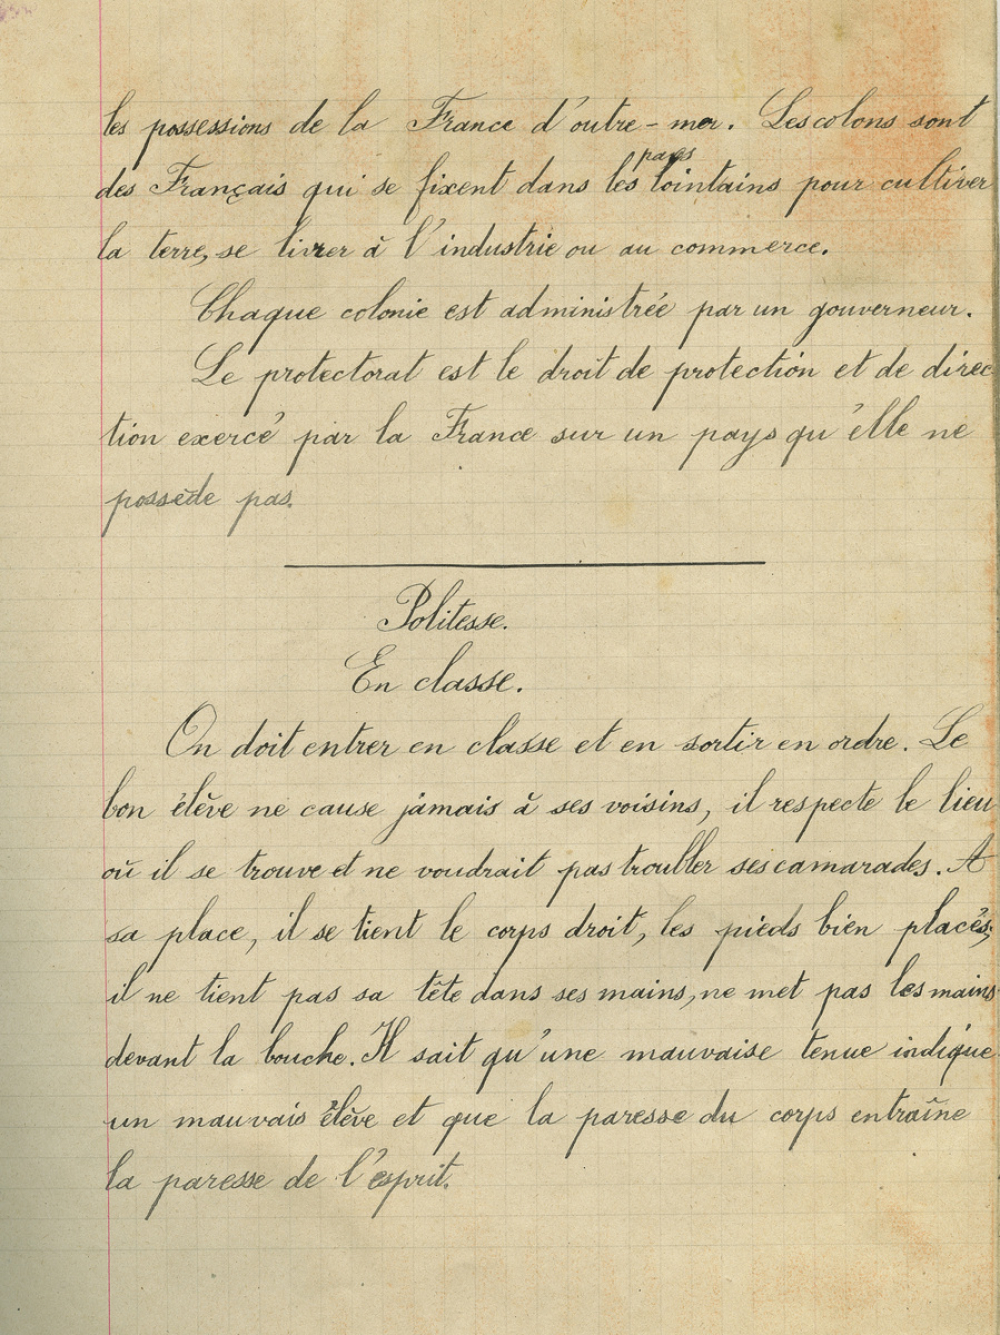 les possessions de la France d'outre-mer. Les colons sont
des Français qui se fixent dans les pays lointains pour cultiver
la terre, se livrer à l'industrie ou au commerce.
Chaque colonie est administrée par un gouverneur.
Le protectorat est le droit de protection et de direc
tion exercé par la France sur un pays qu'elle ne
possède pas.
Politesse.
En classe.
On doit entrer en classe et en sortir en ordre. Le
bon élève ne cause jamais à ses voisins, il respecte le lieu
où il se trouve et ne voudrait pas troubler ses camarades. A
sa place, il se tient le corps droit, les pieds bien placés;
il ne tient pas sa tête dans ses mains, ne met pas les mains
devant la bouche. Il sait qu'une mauvaise tenue indique
un mauvais élève et que la paresse du corps entraîne
la paresse de l'esprit.